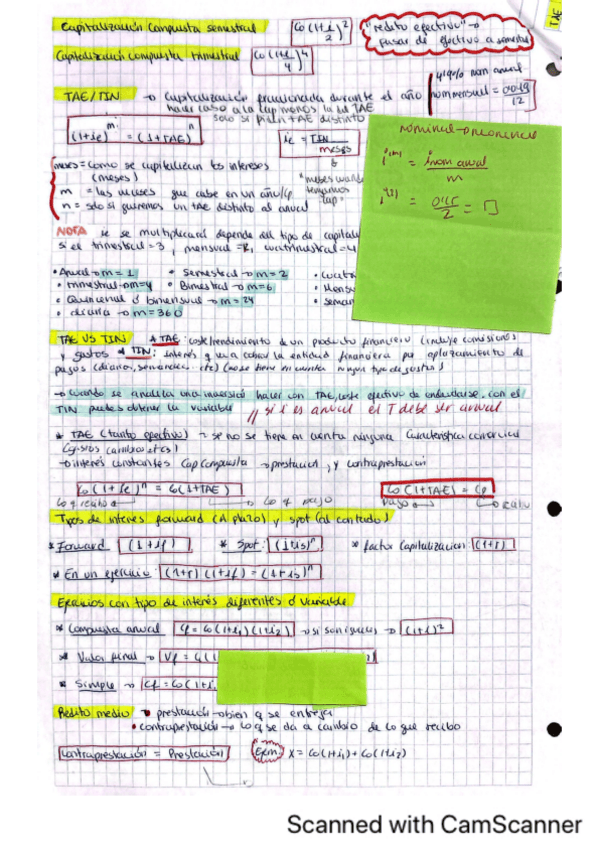 Capitalización compuesta semestral Co(1+i/2)² "redito efectivo"→
pasar de efectivo a semestre
Capitalización compuesta trimestral Co(1+i/4)⁴
TAE/TIN → Capitalización fraccionada durante el año
TAE
solo si piden TAE distinto
nom anual
nom mensual = 0'049/12
(1+ie)^m = (1+TAE)^n ie = TIN/meses
meses = como se capitalizan los intereses
(meses)
m = las meses que cabe en un año/
n = solo si queremos un TAE distinto al anual
nominal → 
i^(m) = inom anual/m
= 0'15/2 = □
NOTA se multiplicará depende del tipo de capitali
si es trimestral = 3, mensual = , cuatrimestral = 4
• Anual → m = 1 • Semestral → m = 2 • cuatr
• trimestral → m=4 • Bimestral → m=6 • Mensu
• Quincenal ó bimensual → m = 24 • seman
• diaria → m = 360
TAE VS TIN * TAE: coste/rendimiento de un producto financiero (incluye comisiones
y gastos * TIN: interés q va a cobrar la entidad financiera por aplazamiento de
pagos (diario, semanal.. etc) (no se tiene en cuenta ningun tipo de gastos)
→ Cuando se analiza una inversión hacer con TAE, coste efectivo de endeudarse. con el
TIN puedes obtener la variable // si i es anual el T debe ser anual
* TAE (tanto efectivo) = se no se tiene en cuenta ninguna característica comercial
(gastos cambios etc)
→ interés constantes Cap Compuesta → prestación, y contraprestación
Co(1+ie)^n = Co(1+TAE) Co(1+TAE) = Cf
lo q recibo lo q pago pago recibo
Tipos de interés forward (A plazo) y spot (al contado)
* Forward (1+if) * Spot: (1+is)^n * factor Capitalización: (1+r)
* En un ejercicio: (1+r)(1+if) = (1+is)^n
Ejercicios con tipo de interés diferentes ó variable
* Compuesta anual Cf = Co(1+i₁)(1+i₂) → si son iguales → (1+i)²
* Valor final → Vf = C(1
* Simple → Cf = Co(1+i.
Redito medio • prestación → bien q se entrega
• contraprestación → lo q se da a cambio de lo que recibo
Contraprestación = Prestación Ejem: X = Co(1+i₁) + Co(1+i₂)
TAE
Scanned with CamScanner